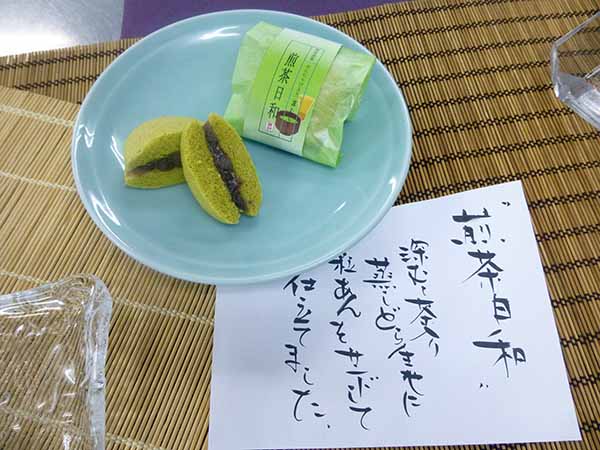 煎茶日和
"煎茶日和"
深むし茶入り
蒸しどら生地に
粒あんをサンドして
仕立てました。